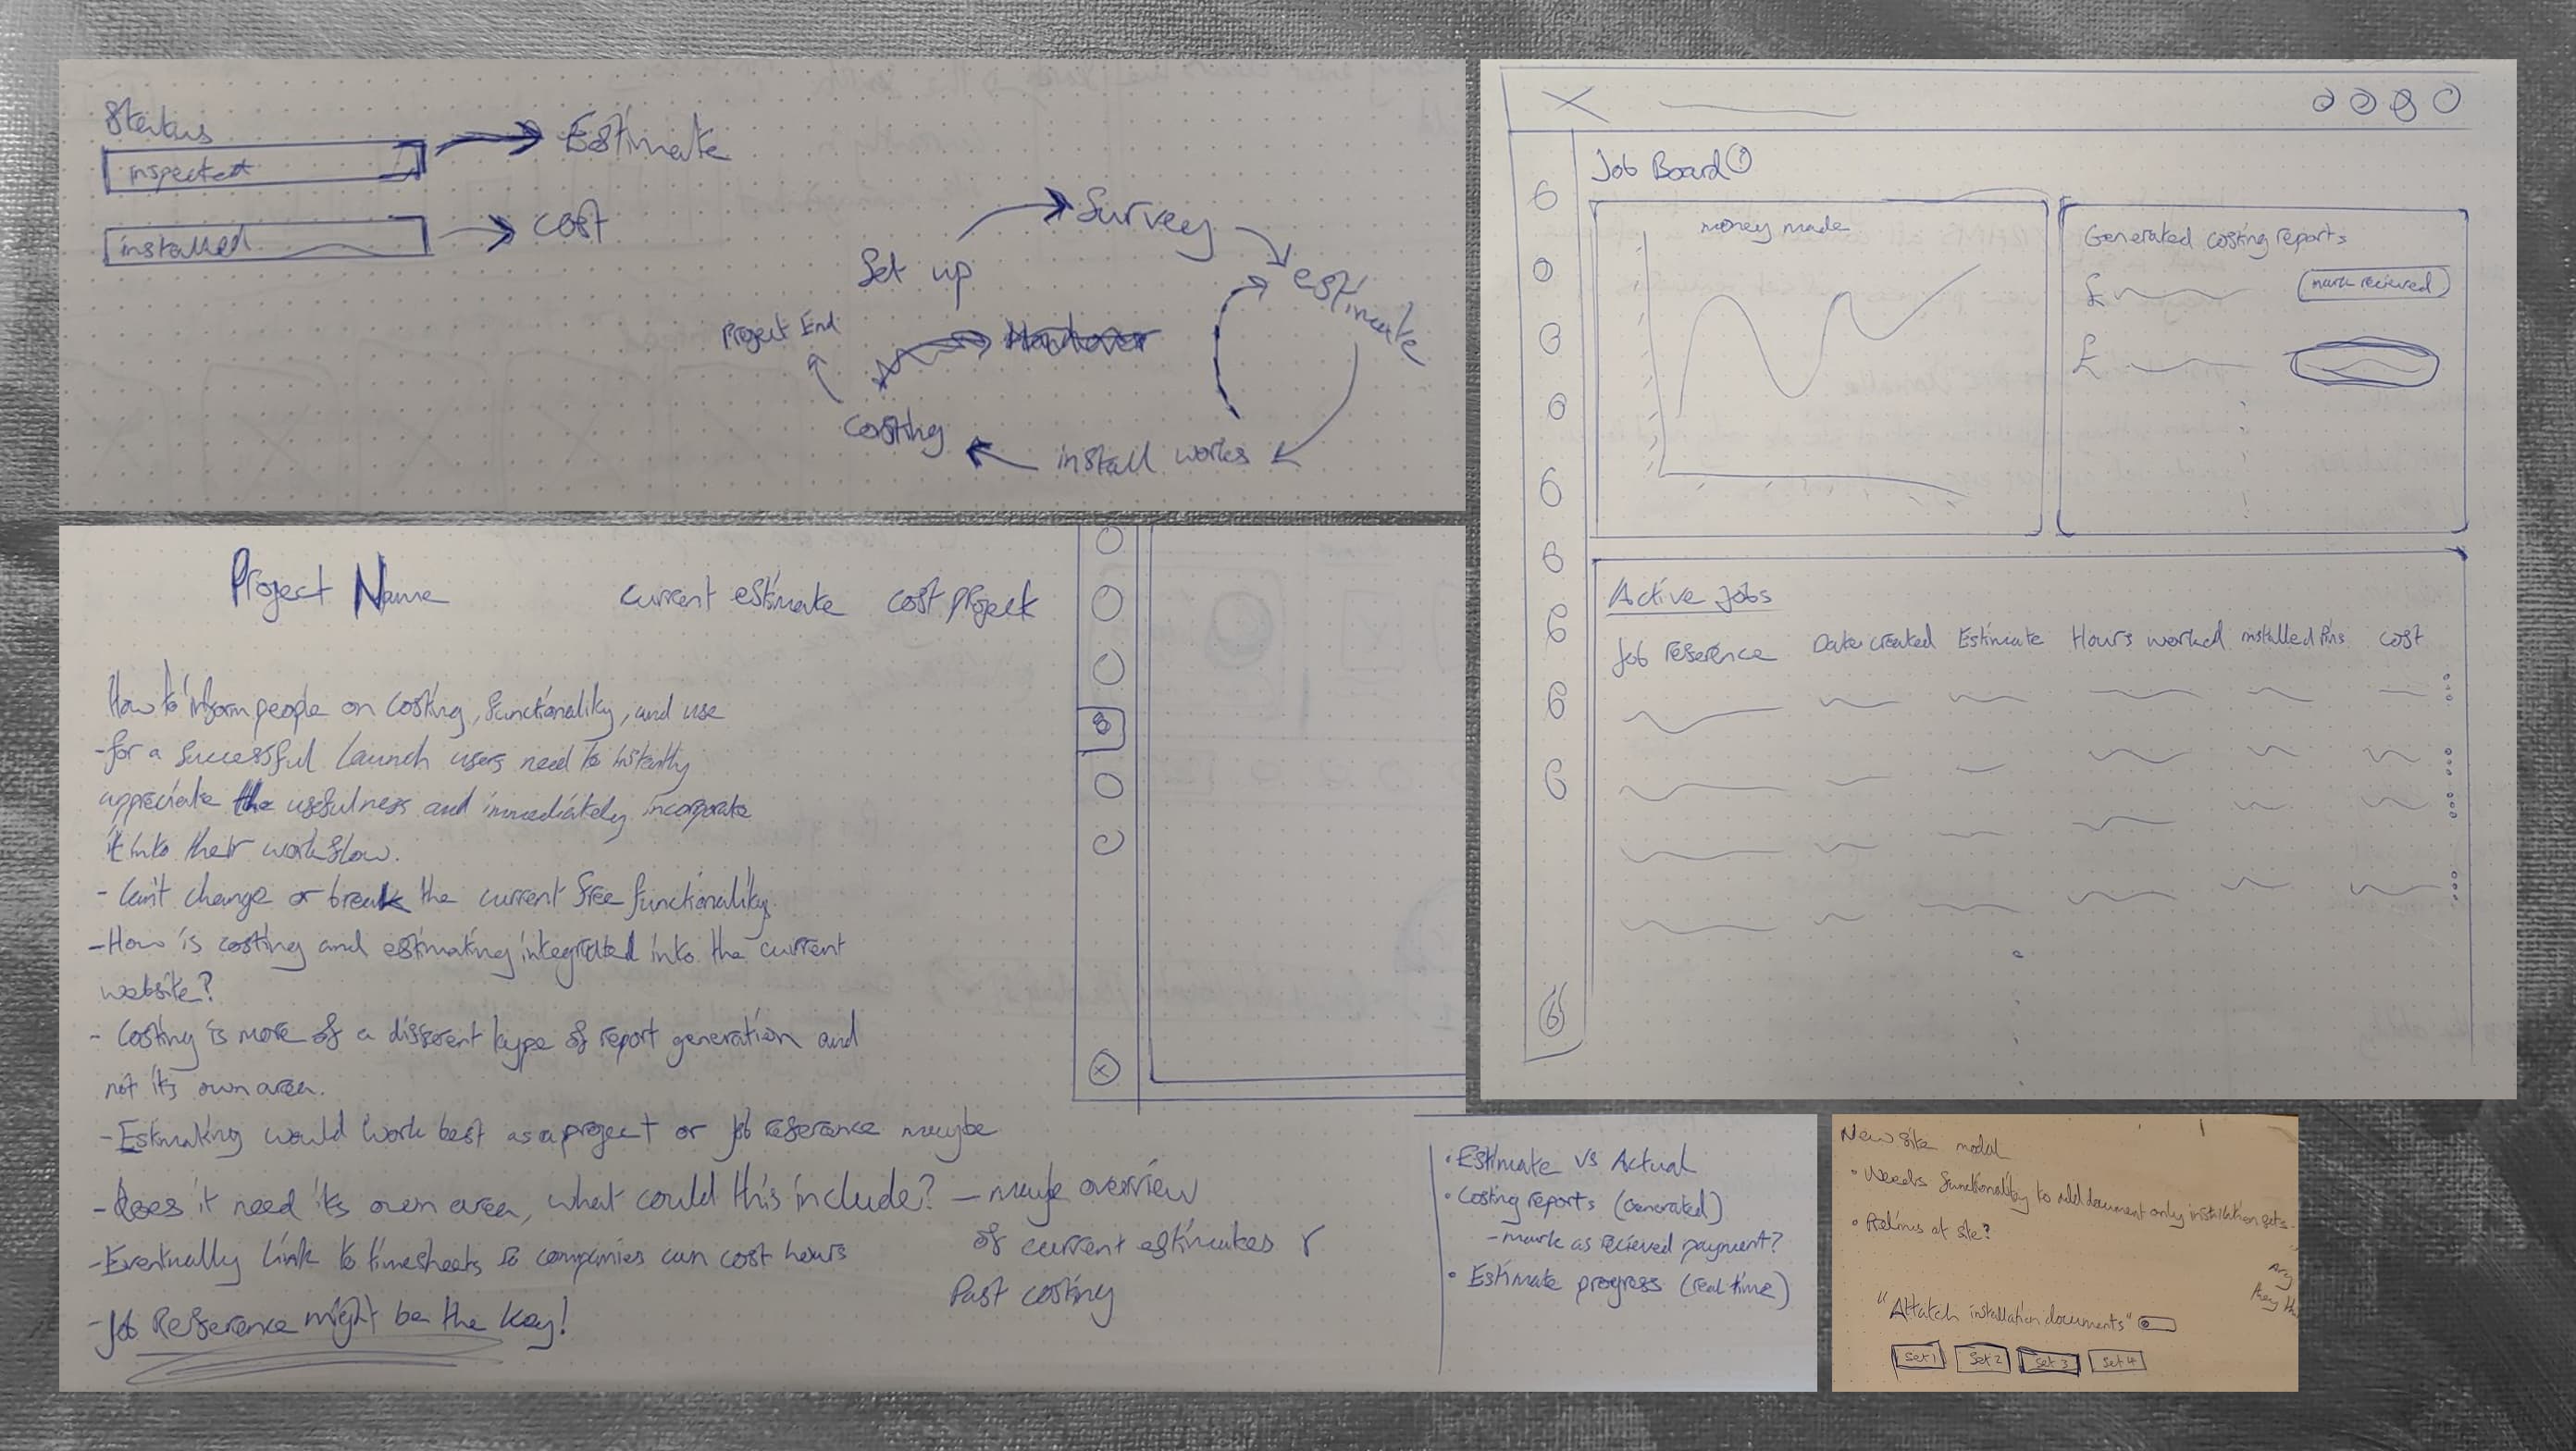 Status
inspected
Estimate
installed
cost
Set up
Survey
estimate
install works
costing
Project End
Handover
Job Board
money made
Generated costing reports
£
mark recieved
£
Active Jobs
Job reference
Date created
Estimate
Hours worked
installed Pins
cost
Project Name
current estimate
cost project
How to inform people on costing, functionality, and use
- for a successful launch users need to instantly
appreciate the usefulness and immediately incorporate
it into their workflow.
- Can't change or break the current free functionality.
- How is costing and estimating integrated into the current
website?
- Costing is more of a different type of report generation and
not its own area.
- Estimating would work best as a project or job reference maybe
- Does it need its own area, what could this include? - maybe overview
of current estimates &
Past costing
- Eventually link to timesheets so companies can cost hours
- Job Reference might be the key!
• Estimate vs Actual
• Costing reports (Generated)
- mark as recieved payment?
• Estimate progress (real time)
New site modal
• Needs functionality to add document only installation sets.
• at site?
"Attatch installation documents"
Set 1
Set 2
Set 3
Set 4